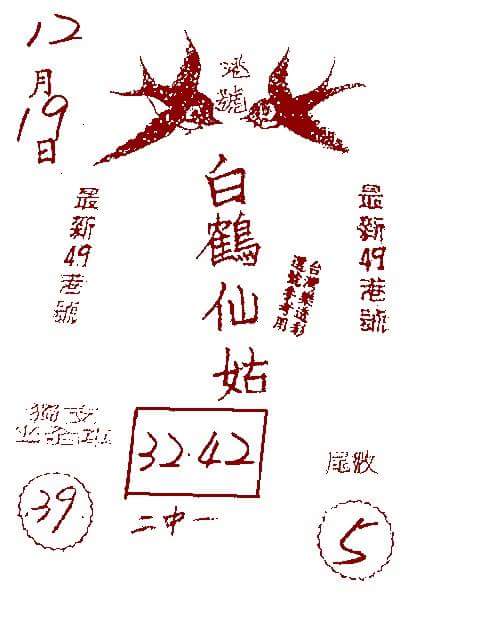 12
月
19
日
港號
白鶴仙姑
最新49港號
最新49港號
台灣樂透彩
選號參考用
獨支
39
32.42
二中一
尾數
5